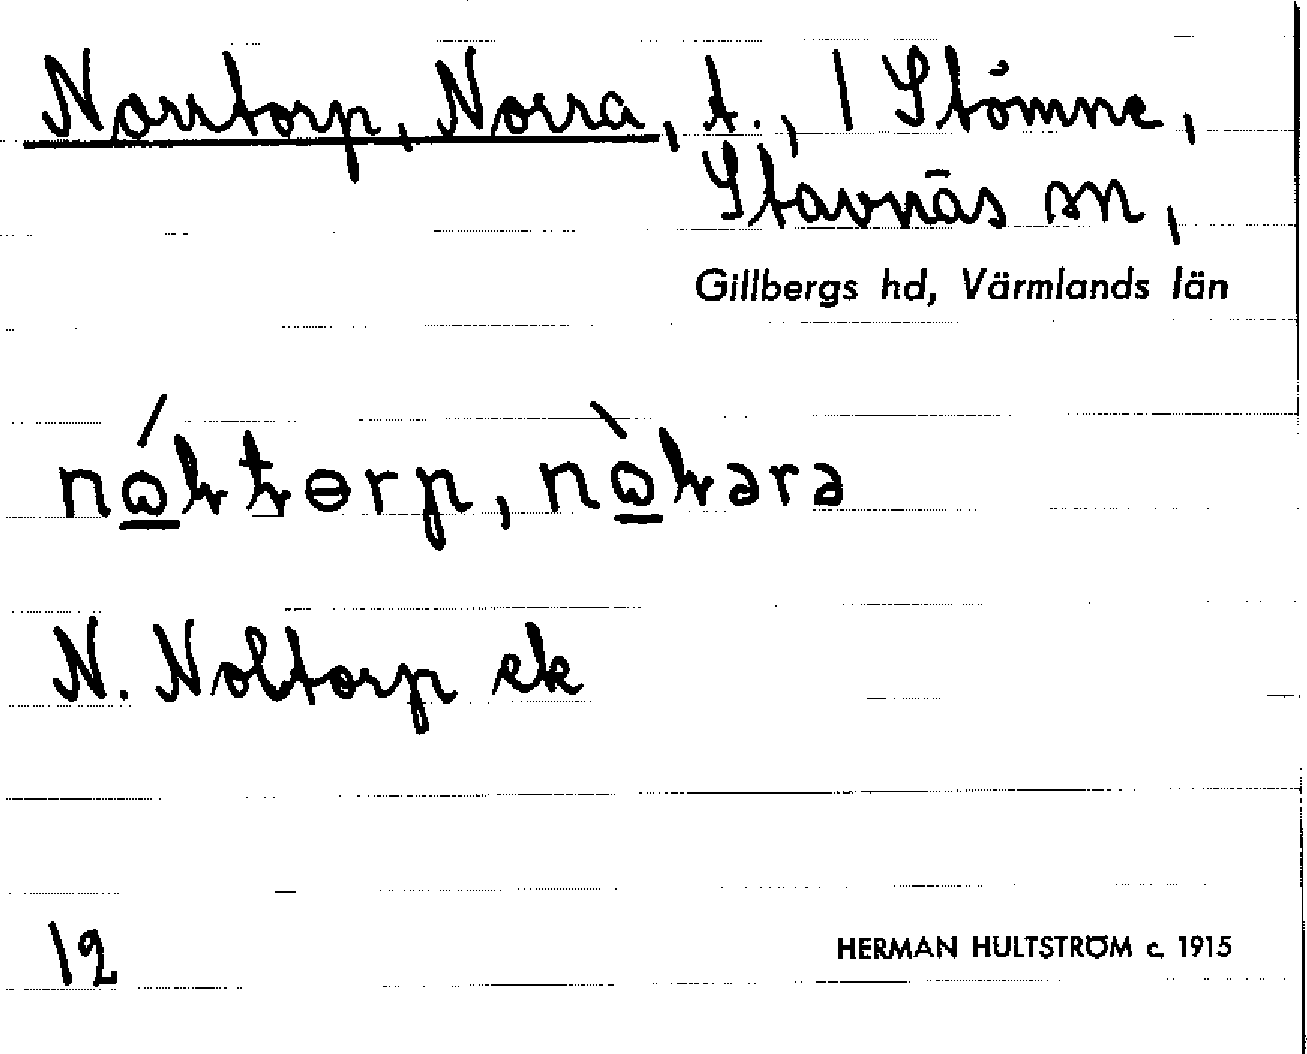 Norrtorp, Norra, t., / Stömne,
Stavnäs sn,
Gillbergs hd, Värmlands län
N. Noltorp ek
12
HERMAN HULTSTRÖM c. 1915